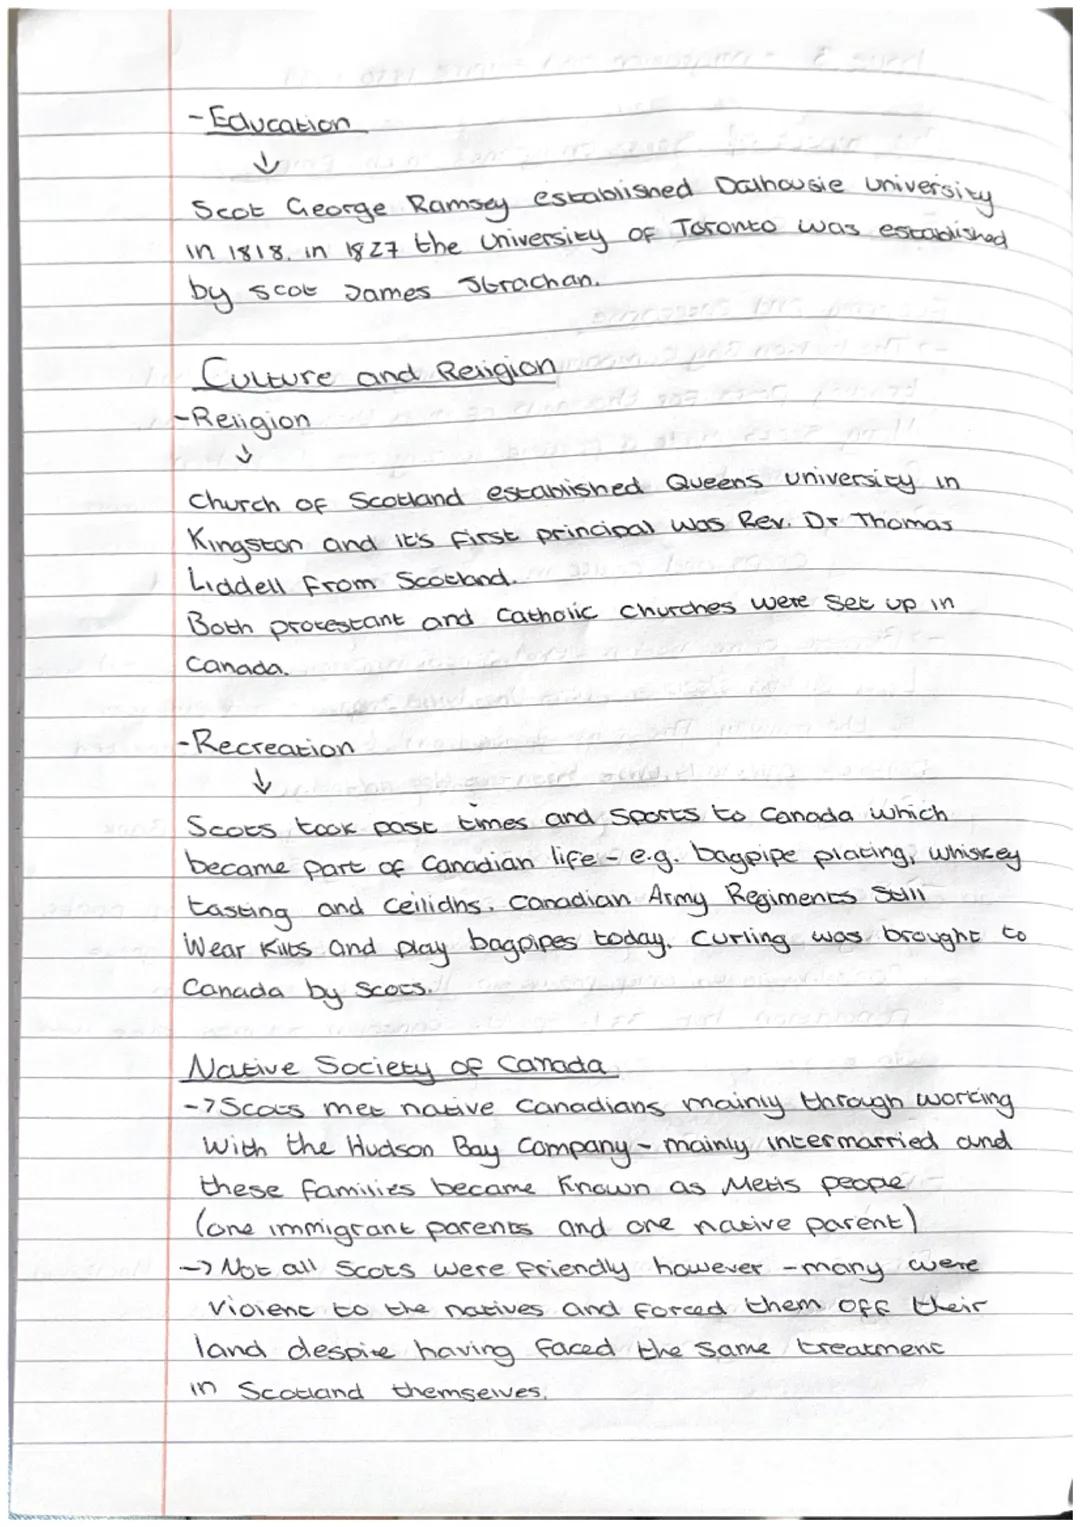 -Education
↓
Scot George Ramsey established Dalhousie University
in 1818. in 1827 the University of Toronto was established
by scot James Strachan.
Culture and Religion
-Religion
↓
Church of Scotland established Queens university in
Kingston and it's first principal was Rev. Dr Thomas
Liddell from Scotland.
Both protestant and Catholic churches were set up in
Canada.
-Recreation
↓
Scots took past times and Sports to Canada which
became part of Canadian life - e.g. bagpipe placing, whiskey
tasting and ceilidhs. Canadian Army Regiments still
Wear Kilts and play bagpipes today. Curling was brought to
Canada by Scots.
Native Society of Canada
-> Scots met native Canadians mainly through working
with the Hudson Bay Company - mainly intermarried and
these families became known as Metis people
(one immigrant parents and one native parent)
-> Not all Scots were friendly however - many were
violent to the natives and forced them off their
land despite having faced the same treatment
in Scotland themselves.